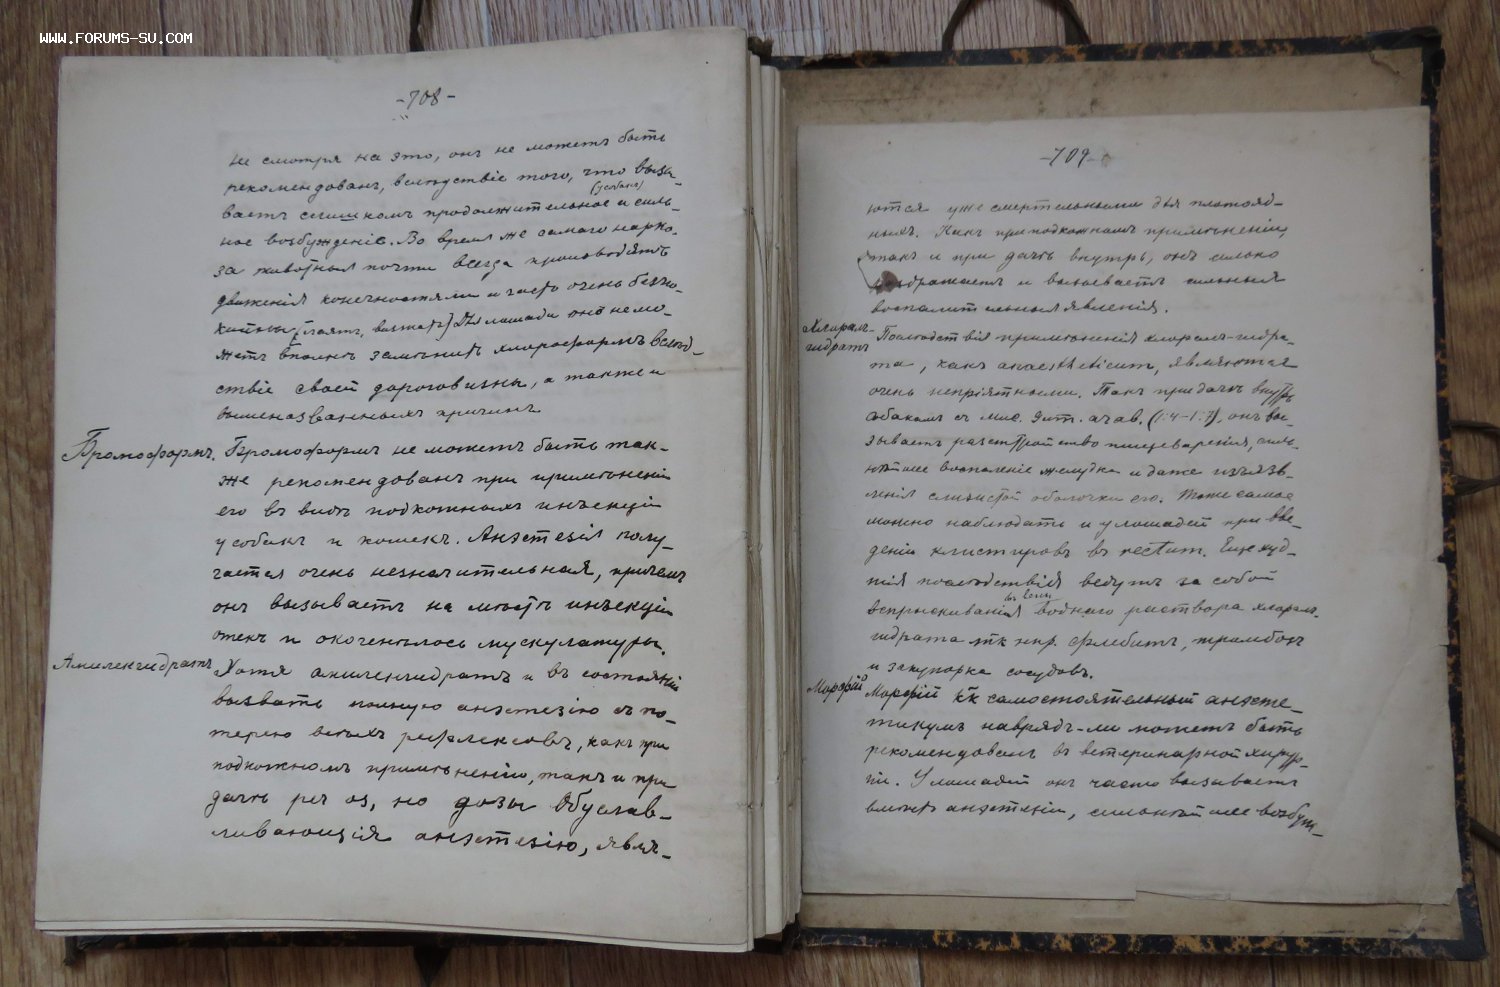 WWW.FORUMS-SU.COM
-708-
не смотря на это, онъ не можетъ быть
рекомендованъ, вслѣдствіе того, что вызы-
(у собакъ)
ваетъ слишкомъ продолжительное и силь-
ное возбужденіе. Во время же самаго нарко-
за животныя почти всегда производятъ
движенія конечностями и часто очень безпо-
койны (лаятъ, визжатъ). Для лошади онъ не мо-
жетъ вполнѣ замѣнить хлороформъ вслѣд-
ствіе своей дороговизны, а также и
вышеназванныхъ причинъ
Бромоформъ.
Бромоформъ не можетъ быть так-
же рекомендованъ при примѣненіи
его въ видѣ подкожныхъ инъекцій
у собакъ и кошекъ. Анэстезія полу-
чается очень незначительная, причемъ
онъ вызываетъ на мѣстѣ инъекціи
отекъ и окоченѣлось мускулатуры.
Амиленгидратъ
Хотя амиленгидратъ и въ состояніи
вызвать полную анэстезію съ по-
терею всѣхъ рефлексовъ, какъ при
подкожномъ примѣненіи, такъ и при
дачѣ per os, но дозы обуслав-
ливающія анэстезію, явля-
-709-
ются уже смертельными для плотояд-
ныхъ. Какъ при подкожномъ примѣненіи,
такъ и при дачѣ внутрь, онъ сильно
раздражаетъ и вызываетъ сильныя
воспалительныя явленія.
Хлорал-
гидратъ
Послѣдствія примѣненія хлорал-гидра-
та, какъ anaestheticum, являются
очень непріятными. Такъ при дачѣ внутрь
собакамъ съ ачав. (1:4-1:7), онъ вы-
зываетъ разстройство пищеваренія, силь-
нѣйшее воспаленіе желудка и даже изъязв-
ленія слизистой оболочки его. Тоже самое
можно наблюдать и у лошадей при вве-
деніи клистировъ въ rectum. Еще худ-
шія послѣдствія ведутъ за собой
въ вены
вспрыскиванія воднаго раствора хлорал-
гидрата кк нпр. флебитъ, тромбозъ
и закупорка сосудовъ.
Морфій
Морфій кк самостоятельный анэсте-
тикумъ наврядъ-ли можетъ быть
рекомендованъ въ ветеринарной хирур-
гіи. У лошадей онъ часто вызываетъ
вмѣсто анэстезіи, сильнѣйшее возбуж-